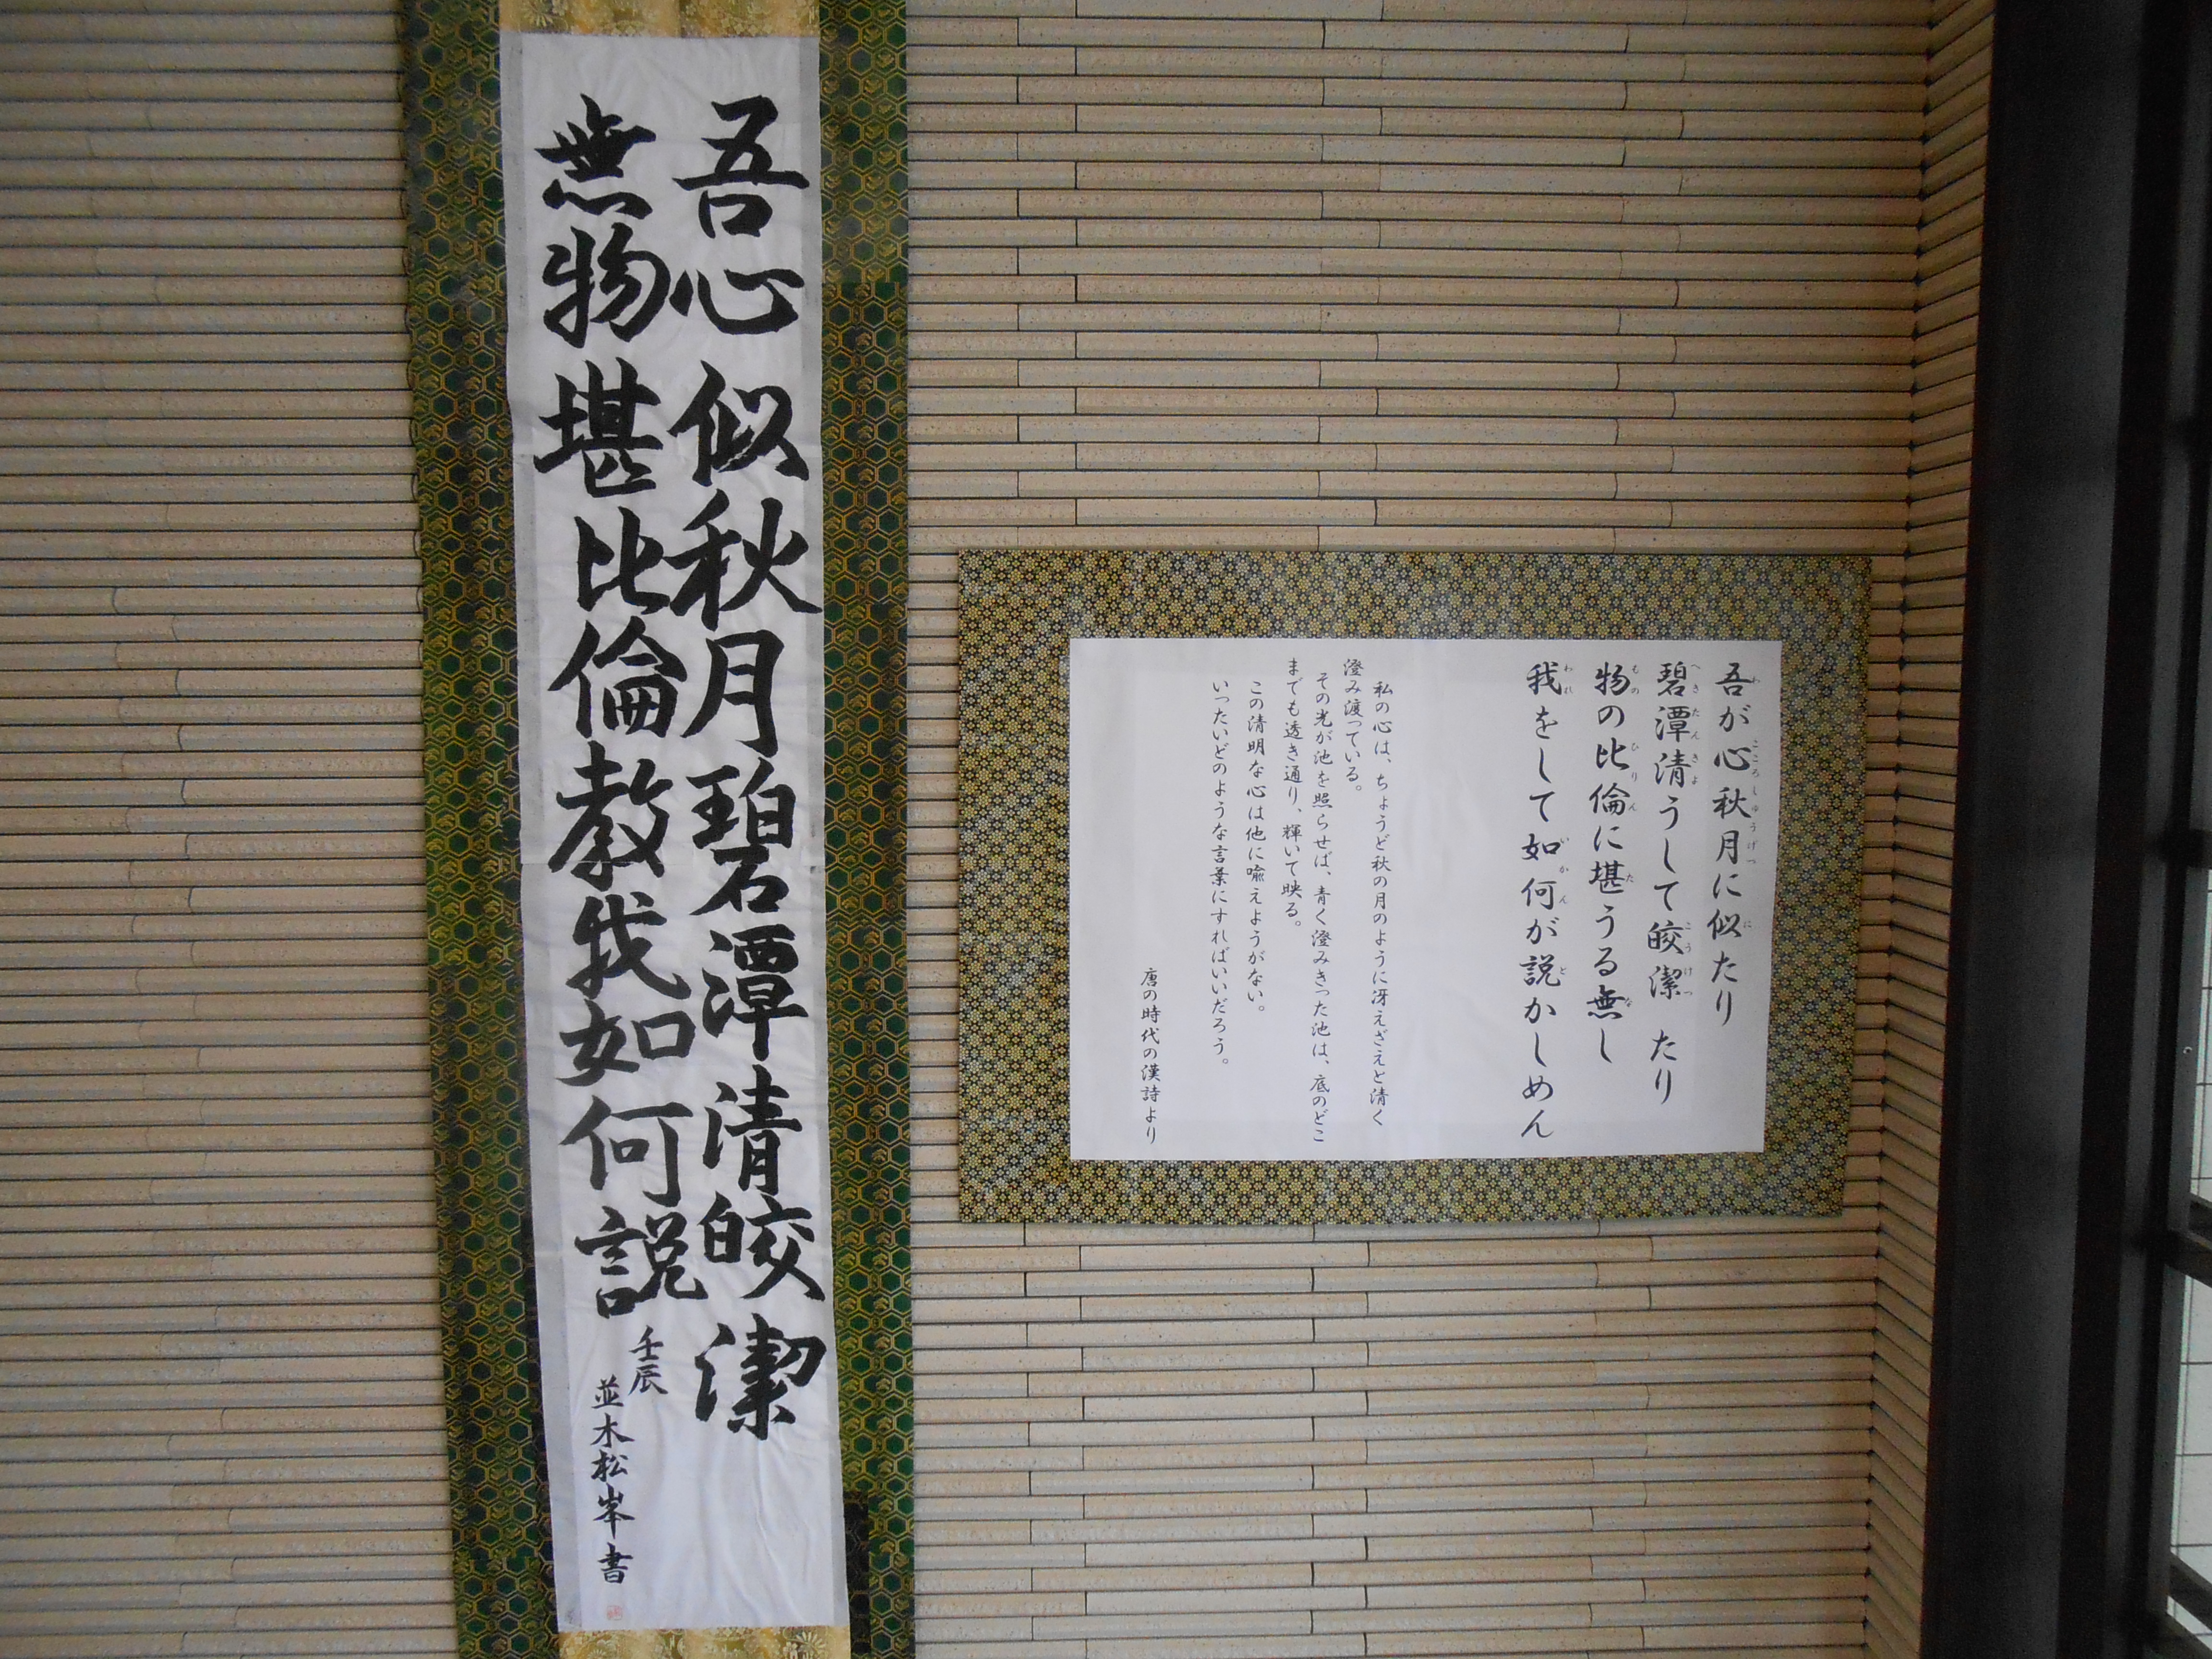 吾心似秋月碧潭清皎潔
無物堪比倫教我如何説
壬辰
並木松峯書
吾が心秋月に似たり
碧潭清うして皎潔たり
物の比倫に堪うる無し
我をして如何が説かしめん
私の心は、ちょうど秋の月のように冴えざえと清く
澄み渡っている。
その光が池を照らせば、青く澄みきった池は、底のどこ
までも透き通り、輝いて映る。
この清明な心は他に喩えようがない。
いったいどのような言葉にすればいいだろう。
唐の時代の漢詩より